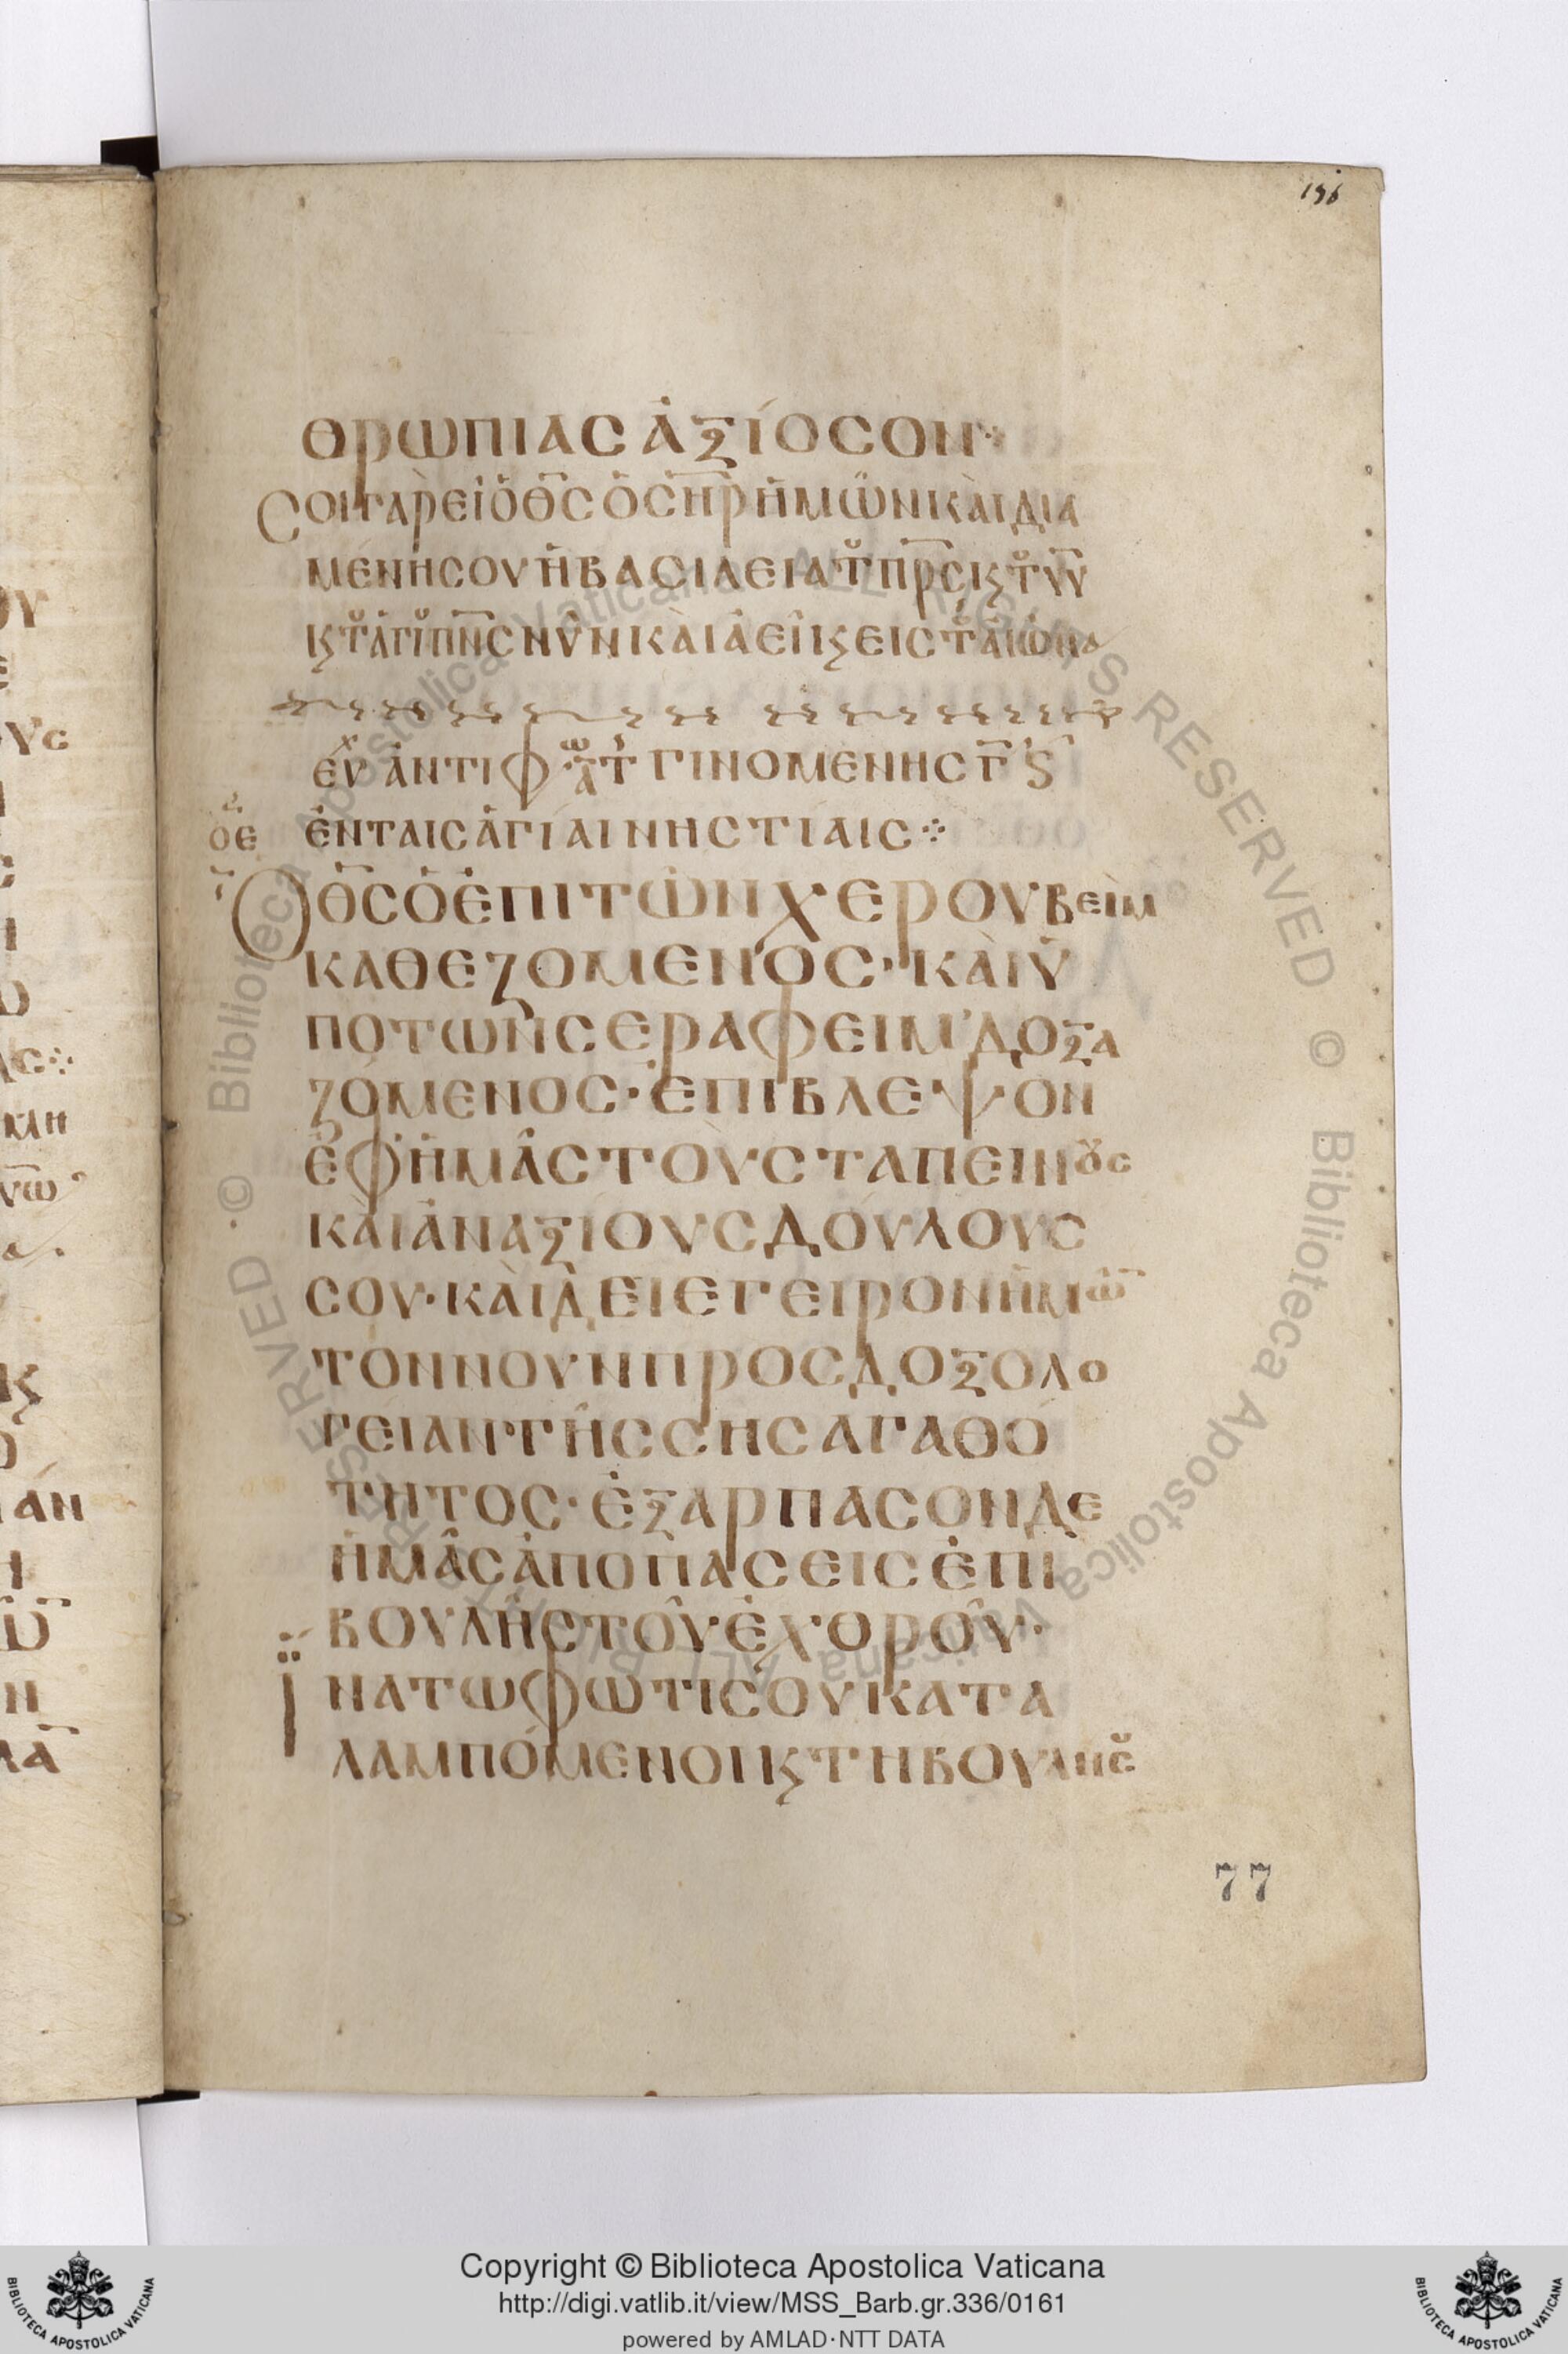 136
θρωπίας ἀξίοσον·
Σοι γὰρ εἶ ὁ θ̅ς̅ ὁ σ̅η̅ρ̅ ἡμῶν καὶ δια
μένη σου ἡ βασιλεία τοῦ π̅ρ̅ς̅ ϗ τοῦ υ̅υ̅
ϗ τοῦ ἁγίου π̅ν̅ς̅ νῦν καὶ ἀεὶ ϗ εἰς τοὺς αἰῶνα
εὐχ ἀντιφώ α τ γινομένης γ̅ ς
οε ἐν ταῖς ἁγίαι νηστίαις ⁘
Ὁ θ̅ς̅ ὁ ἐπι τῶν χερουβειμ
καθεζομενος· καὶ ὑ
πο των σεραφειμ δοξα
ζόμενος· ἐπιβλεψον
ἐφ ἡμᾶς τοὺς ταπεινους
καὶ ἀναξιους δούλους
σου· καὶ διεγειρον ἡμῶ̅
τον νουν προς δοξολο
γείαν τῆς σης αγαθό
τητος· ἐξαρπασον δε
ἡμᾶς ἀπο πάσεις ἐπι
βουλῆς τοῦ ἐχθροῦ·
ἵνα τω φωτι σου κατα
λαμπόμενοι ϗ τη βουλη σου
77
Copyright © Biblioteca Apostolica Vaticana
http://digi.vatlib.it/view/MSS_Barb.gr.336/0161
powered by AMLAD·NTT DATA
BIBLIOTECA APOSTOLICA VATICANA
BIBLIOTECA APOSTOLICA VATICANA